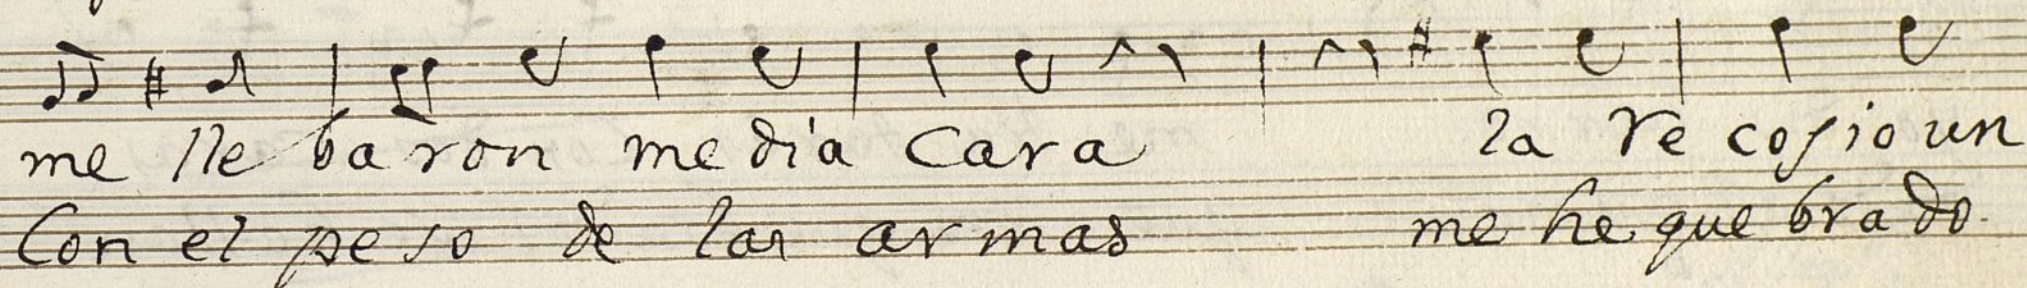 me lle baron media Cara la Re cosio un
Con el peso de las armas me he quebrado